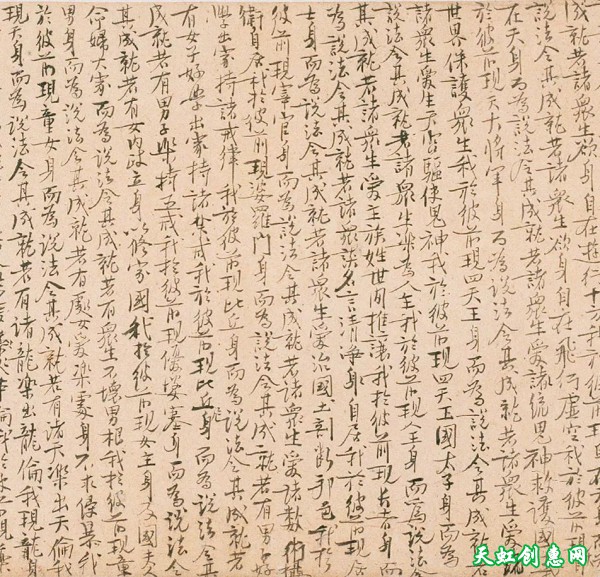 成就若諸眾生欲身自在遊行十方我於彼前現
說法令其成就若諸眾生欲身自在飛行虛空我於彼前現
在天身而為說法令其成就若諸眾生愛諸統鬼神救護國
於彼前現天大將軍身而為說法令其成就若諸眾生愛統
世界保護眾生我於彼前現四天王身而為說法令其成就若
諸眾生愛生天宮驅使鬼神我於彼前現四天王國太子身而為
說法令其成就若諸眾生樂為人王我於彼前現人王身而為說法令
其成就若諸眾生愛主族姓世間推讓我於彼前現長者身而
為說法令其成就若諸眾樂名言清淨自居我於彼前現居
士身而為說法令其成就若諸眾生愛治國土割斷邦邑我於
彼前現宰官身而為說法令其成就若諸眾生愛諸數術攝
衛自居我於彼前現婆羅門身而為說法令其成就若有男子好
學出家持諸戒律我於彼前現比丘身而為說法令其成就若
有女子好學出家持諸禁戒我於彼前現比丘身而為說法令其
成就若有男子樂持五戒我於彼前現優婆塞身而為說法令
其成就若有女內政立身以修家國我於彼前現女主身及國夫人
命婦大家而為說法令其成就若有眾生不壞男根我於彼前現童
男身而為說法令其成就若有處女愛樂處身不求侵暴我
於彼前現童女身而為說法令其成就若有諸天樂出天倫我
現天身而為說法令其成就若有諸龍樂出龍倫我現龍身
天虹创意网